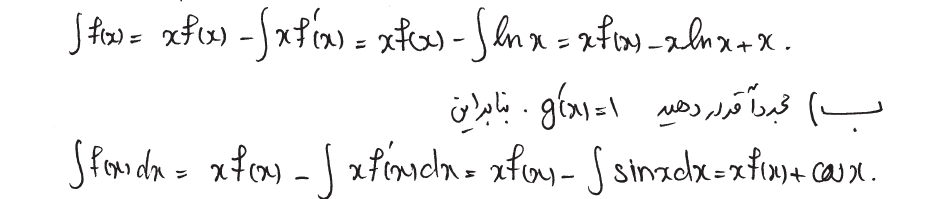 ∫f(x) = xf(x) − ∫xf′(x) = xf(x) − ∫ln x = xf(x) − x ln x + x.
ب) مجدداً قرار دهید g′(x) = 1 . بنابراین
∫f(x)dx = xf(x) − ∫xf′(x)dx = xf(x) − ∫sinxdx = xf(x) + cos x.